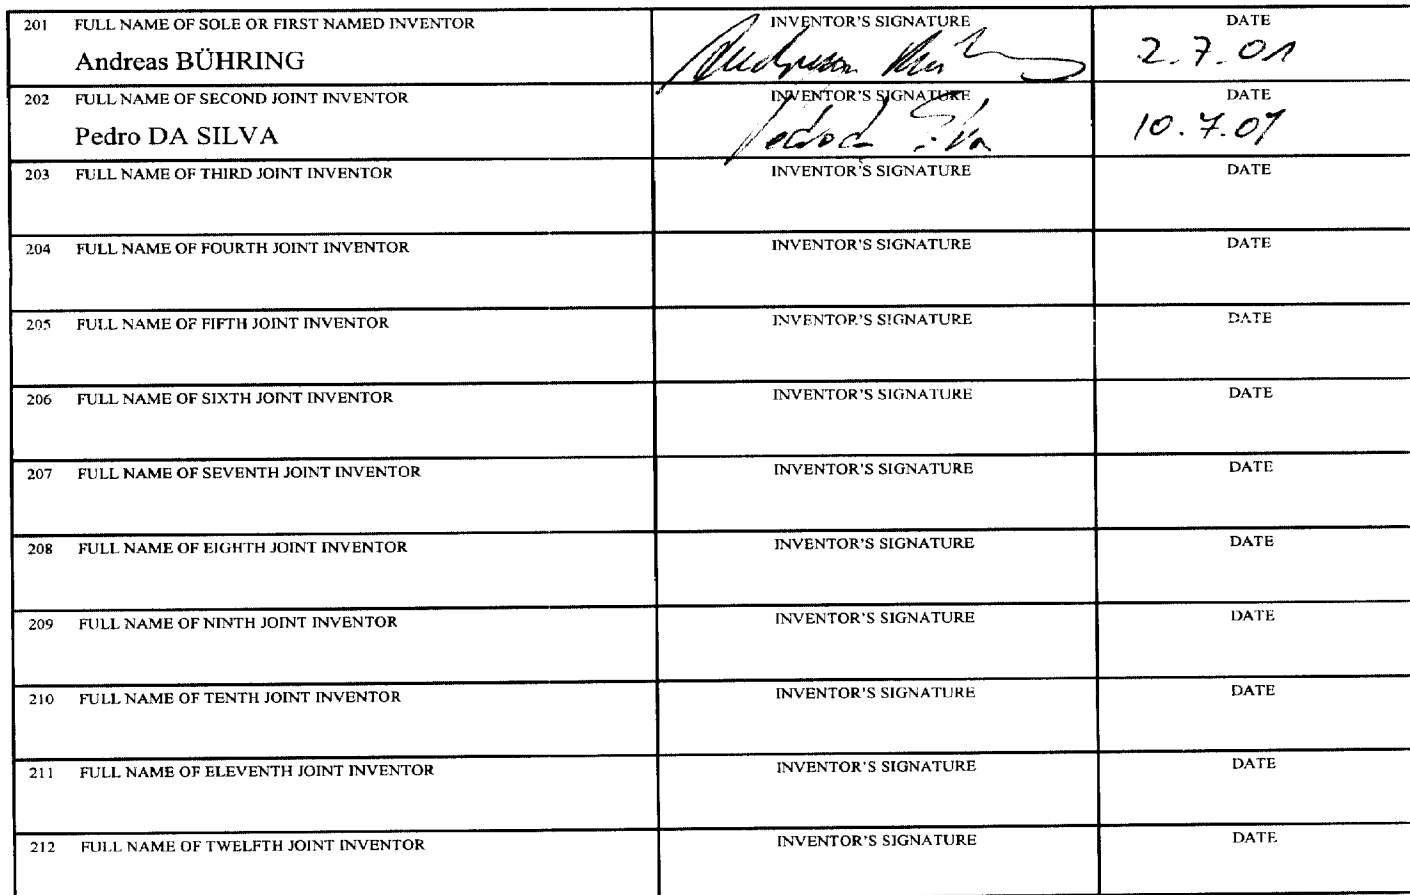 201 FULL NAME OF SOLE OR FIRST NAMED INVENTOR INVENTOR'S SIGNATURE DATE
Andreas BÜHRING 2.7.01
202 FULL NAME OF SECOND JOINT INVENTOR INVENTOR'S SIGNATURE DATE
Pedro DA SILVA Pedro da Silva 10.7.01
203 FULL NAME OF THIRD JOINT INVENTOR INVENTOR'S SIGNATURE DATE
204 FULL NAME OF FOURTH JOINT INVENTOR INVENTOR'S SIGNATURE DATE
205 FULL NAME OF FIFTH JOINT INVENTOR INVENTOR'S SIGNATURE DATE
206 FULL NAME OF SIXTH JOINT INVENTOR INVENTOR'S SIGNATURE DATE
207 FULL NAME OF SEVENTH JOINT INVENTOR INVENTOR'S SIGNATURE DATE
208 FULL NAME OF EIGHTH JOINT INVENTOR INVENTOR'S SIGNATURE DATE
209 FULL NAME OF NINTH JOINT INVENTOR INVENTOR'S SIGNATURE DATE
210 FULL NAME OF TENTH JOINT INVENTOR INVENTOR'S SIGNATURE DATE
211 FULL NAME OF ELEVENTH JOINT INVENTOR INVENTOR'S SIGNATURE DATE
212 FULL NAME OF TWELFTH JOINT INVENTOR INVENTOR'S SIGNATURE DATE